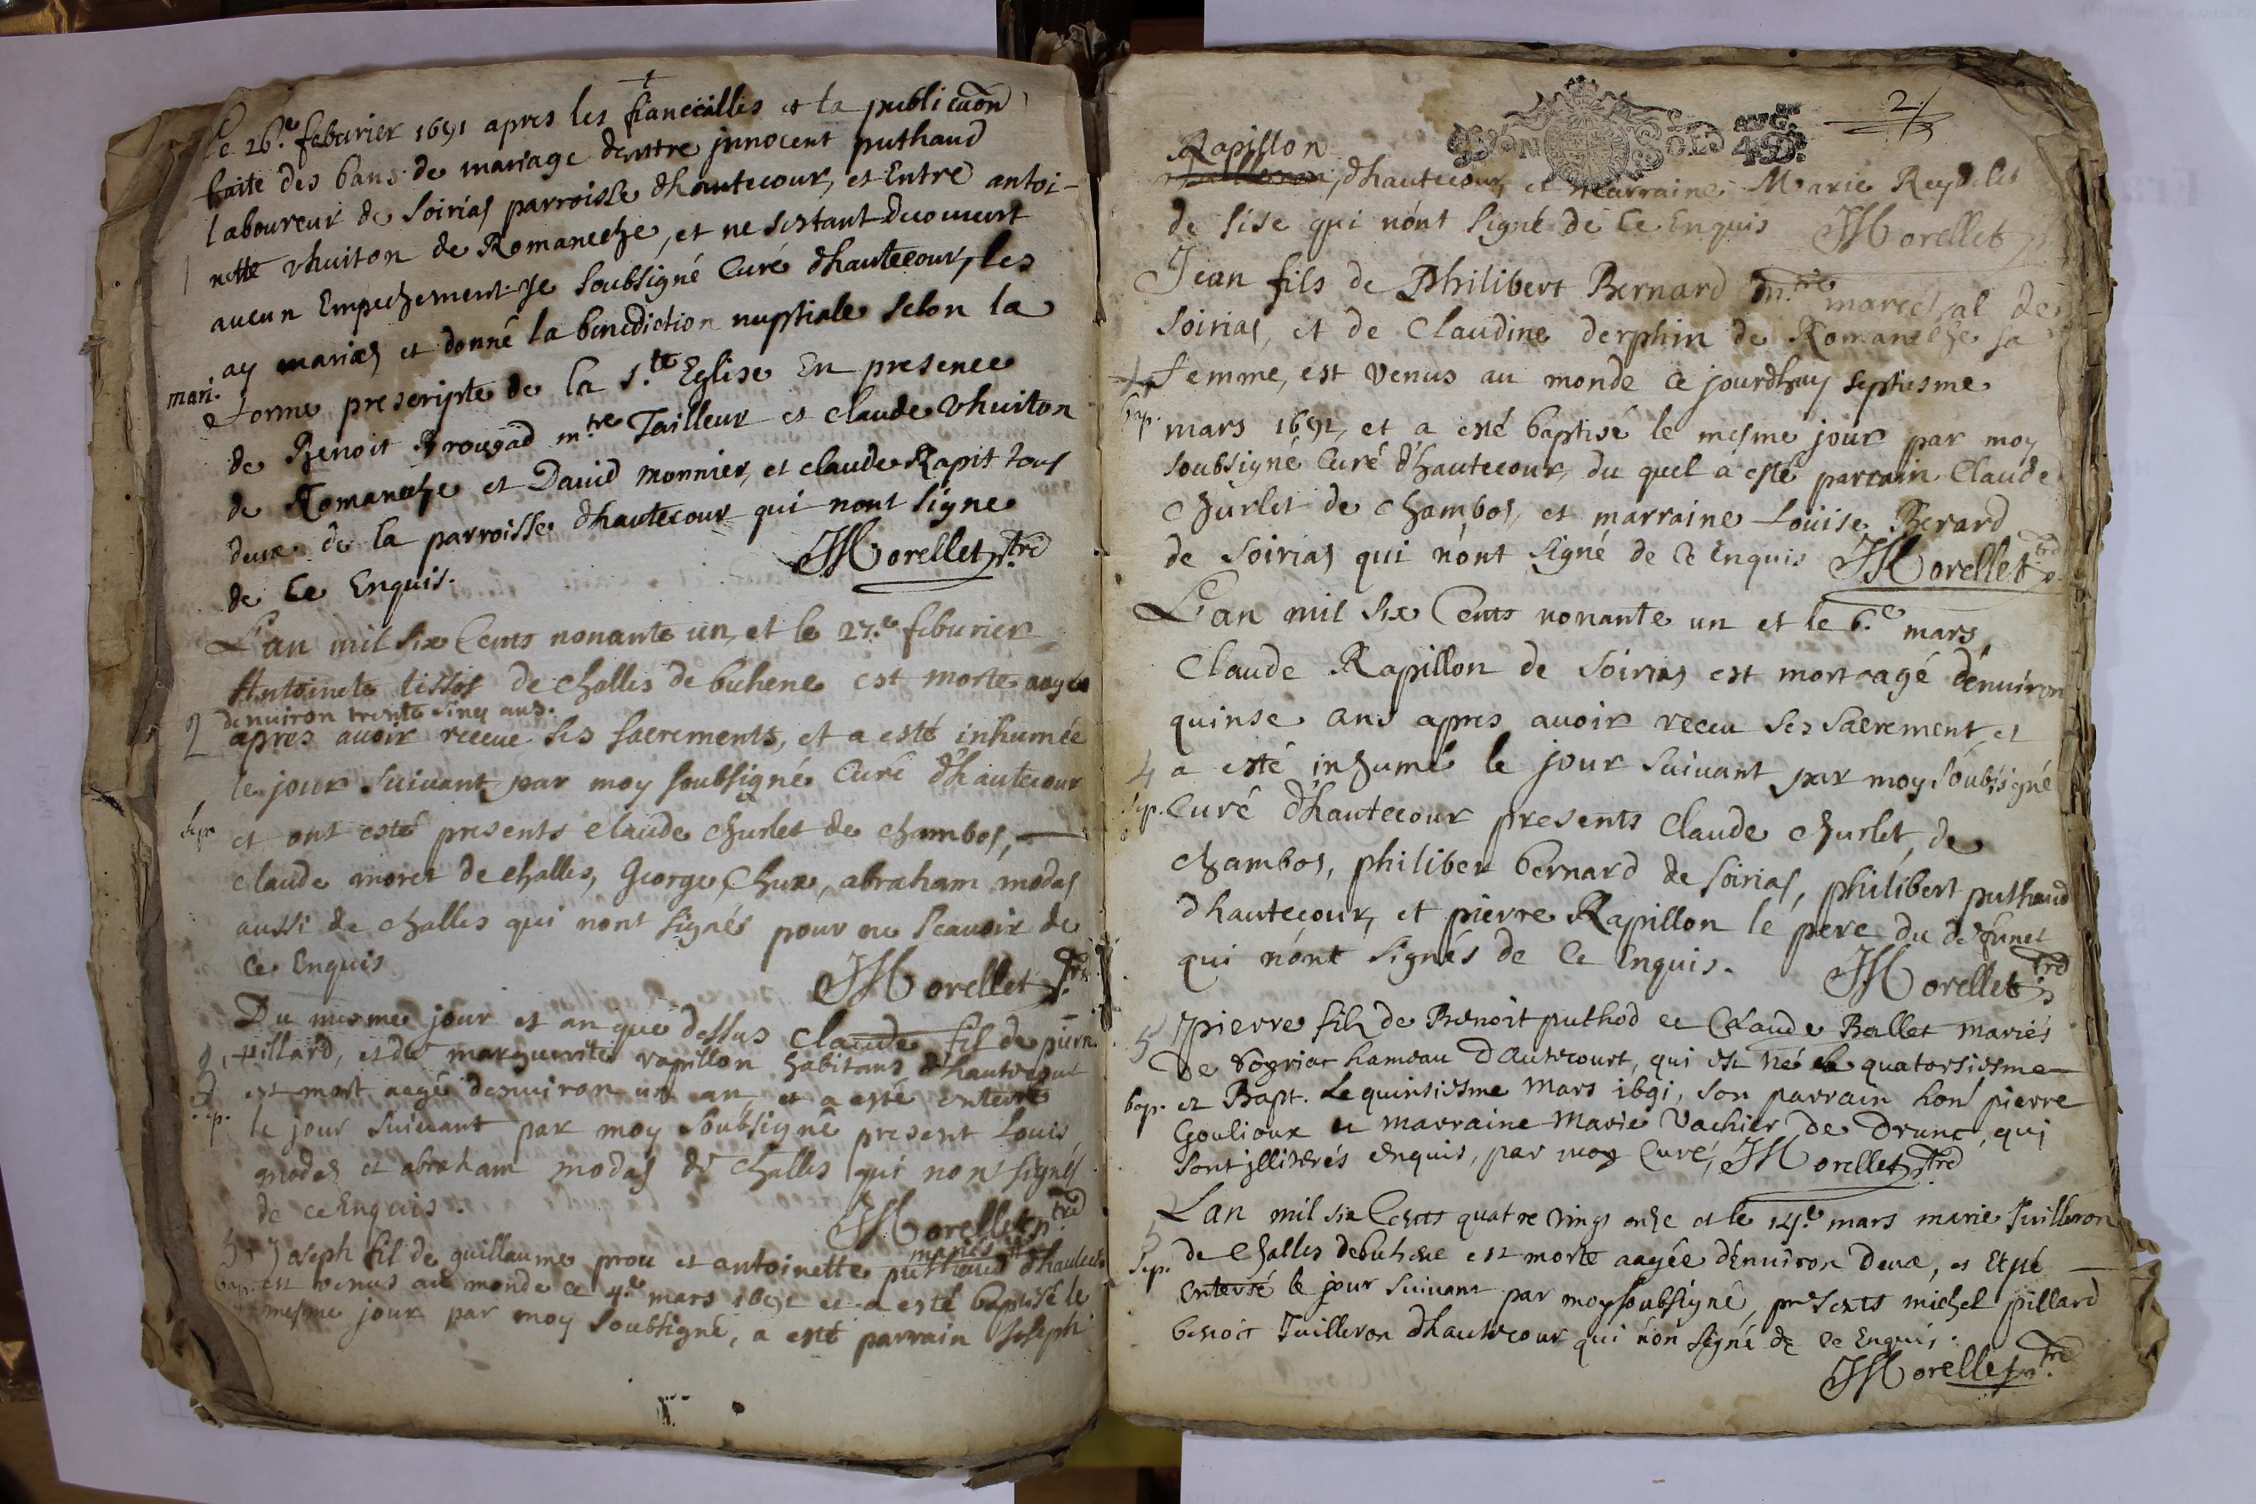 Le 26.e feburier 1691 apres les fiancailles et la publicaon
faite des bans de mariage dentre jnnocent puthaud
laboureur de Soirias parroisse dhautecour, et Entre antoi-
nette vhuiton de Romaneche, et ne sestant decouvert
aucun Empechement je soubsigné Curé dhautecour, les
ay mariés et donné la benediction nuptiale selon la
mari.
forme prescripte de la s.te Eglise En presence
de Benoit Brougad m.tre Tailleur et claude vhuiton
de Romaneche et Dauid monnier, et claude Rapit tous
deux de la parroisse dhautecour qui nont signe
de Ce Enquis.
JMorellet p.tre
L'an mil six Cents nonante un, et le 27.e feburier
Antoinete tissot de challes de buhene est morte aagée
denuiron trente cinq ans.
2 apres auoir receue ses sacrements, et a esté inhumée
le jour suiuant par moy soubsigné Curé dhautecour
sep.
et ont esté presents claude churlet de chambos,
claude moret de challes, George Chux, abraham modas
aussi de challes qui nont signés pour ne scauoir de
ce Enquis
JMorellet p.tre
Du mesme jour et an que dessus claude fils de pierre
pillard, et de marguerite rapillon habitans d'hautecour
est mort aagé denuiron un an, et a esté enterré
sep.
le jour suiuant par moy soubsigné present Louis
modas et abraham modas de challes qui non signés
de ce Enquis.
JMorellet p.tre
mariés
Joseph fil de guillaume prou et antoinette puthaud d'hautecour
bap. est venus au monde ce 4.e mars 1691 et a esté baptisé le
mesme jour par moy soubsigné, a esté parrain Joseph
2
AVG.
LYON SOLD 4D.
Rapillon
dhautecour, et marraine Marie Reydelet
de Sise qui n'ont signé de Ce Enquis JMorellet
Jean fils de Philibert Bernard m.tre marechal de
Soirias, et de Claudine derphin de Romaneche sa
femme, est venus au monde ce jourdhuy septiesme
bap.
mars 1691, et a esté baptisé le mesme jour par moy
soubsigné Curé d'hautecour, du quel a esté parrain Claude
Churlet de chambos, et marraine Loüise Berard
de Soirias qui n'ont signé de Ce Enquis JMorellet p.tre
L'an mil six Cents nonante un et le 6.e mars
Claude Rapillon de Soirias est mort aagé d'enuiron
quinse ans apres auoir receu ses sacrement, et
4 a esté inhumé le jour suiuant par moy soubsigné
sep. Curé d'hautecour presents Claude Churlet, de
chambos, philiber bernard de soirias, philibert puthaud
dhautecour, et pierre Rapillon le pere du defunct
qui n'ont signés de Ce Enquis.
JMorellet p.tre
5 pierre filz de Benoit puthod et Claude Ballet mariés
de Vogriat hameau d'autecourt, qui est né le quatorsiesme
bap. et Bapt. Le quinsiesme Mars 1691, son parrain hon. pierre
Goulioux et marraine Marie Vachier de Drunc, qui
sont jlliterés enquis, par moy Curé, JMorellet p.tre
Lan mil six Cents quatre vings onze et le 14.e mars marie Juilleron
sep. de Challes debuhene est morte aagée d'enuiron deux, et Esté
Enterré le jour suiuant par moysoubsigné, presents michel pillard
benoit Juilleron dhautecour qui n'on signé de Ce Enquis.
JMorellet p.tre